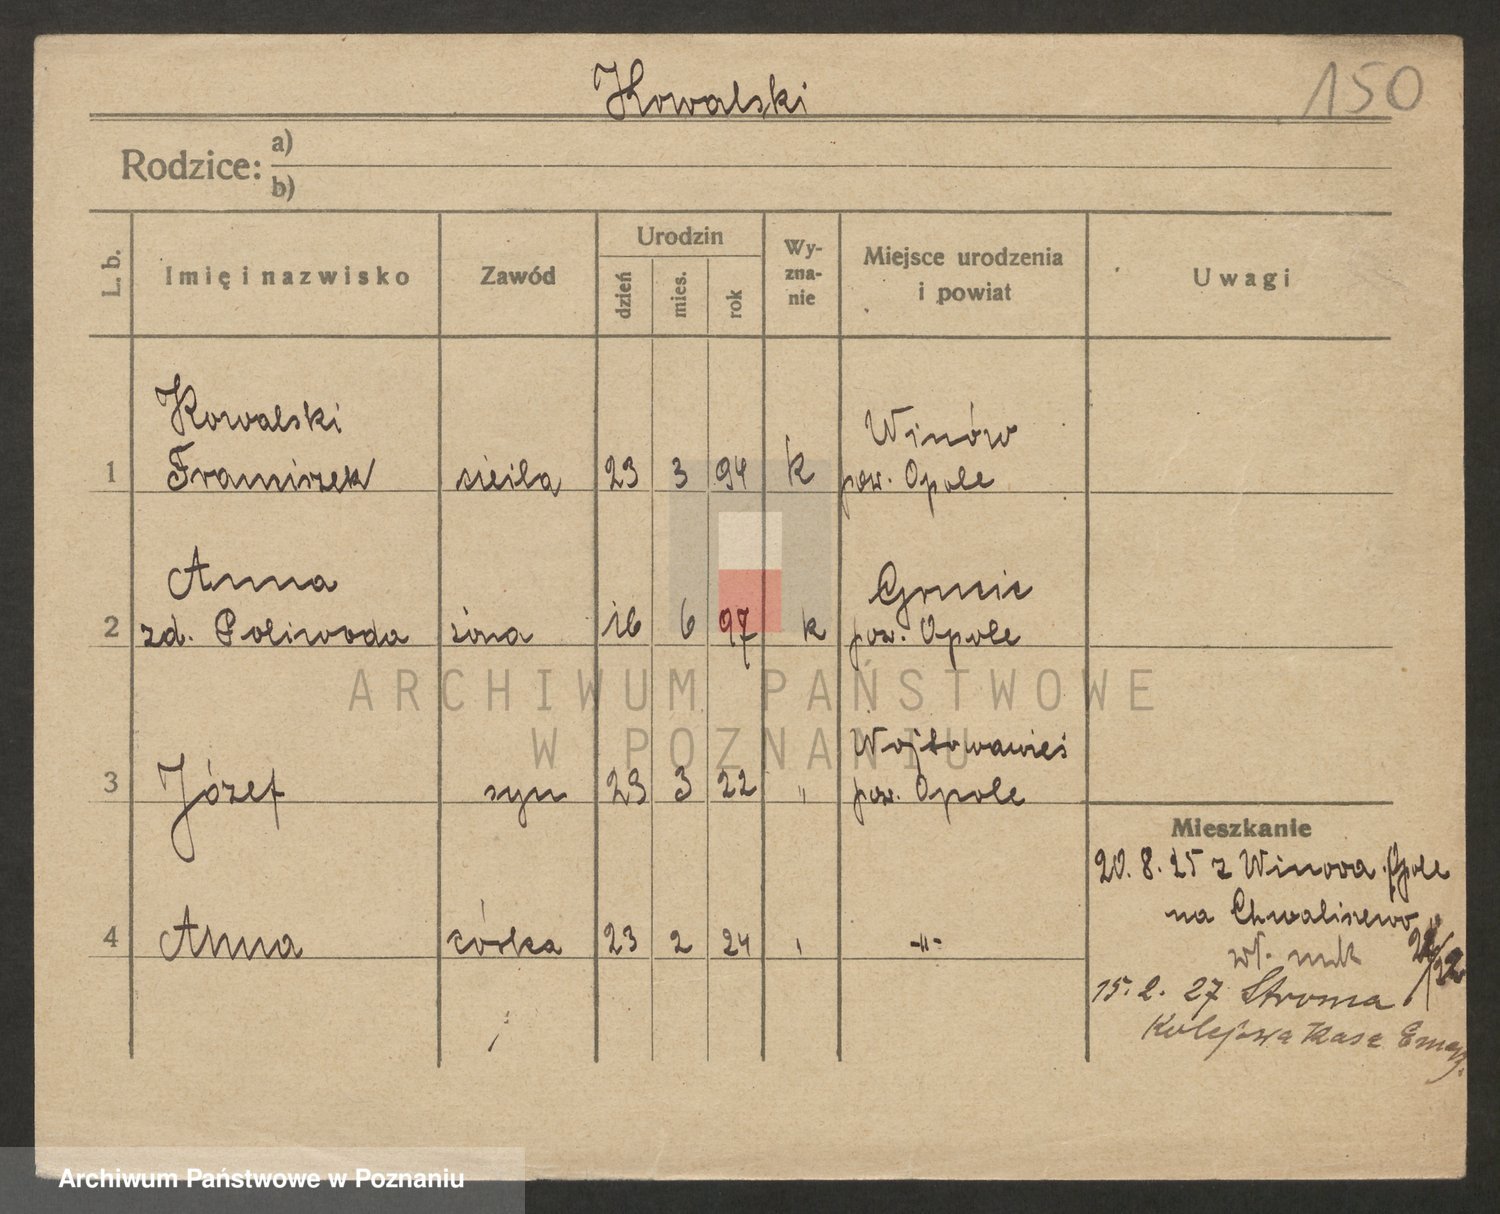 Kowalski
150
Rodzice: a)
b)
L. b.
Imię i nazwisko
Zawód
Urodzin
dzień
mies.
rok
Wy-
zna-
nie
Miejsce urodzenia
i powiat
Uwagi
Kowalski Winów
1 Franciszek cieśla 23 3 94 k pow. Opole
Anna
2 zd. Poliwoda żona 16 6 97 k pow. Opole
Wojtowawieś
3 Józef syn 29 3 22 " pow. Opole
4 Anna córka 23 2 24 " -"-
Mieszkanie
20. 8. 25 z Winowa Opole
na Chwaliszewo
22
15. 2. 27 Stroma
Kolejowa Kasa
ARCHIWUM PAŃSTWOWE
W POZNANIU
Archiwum Państwowe w Poznaniu